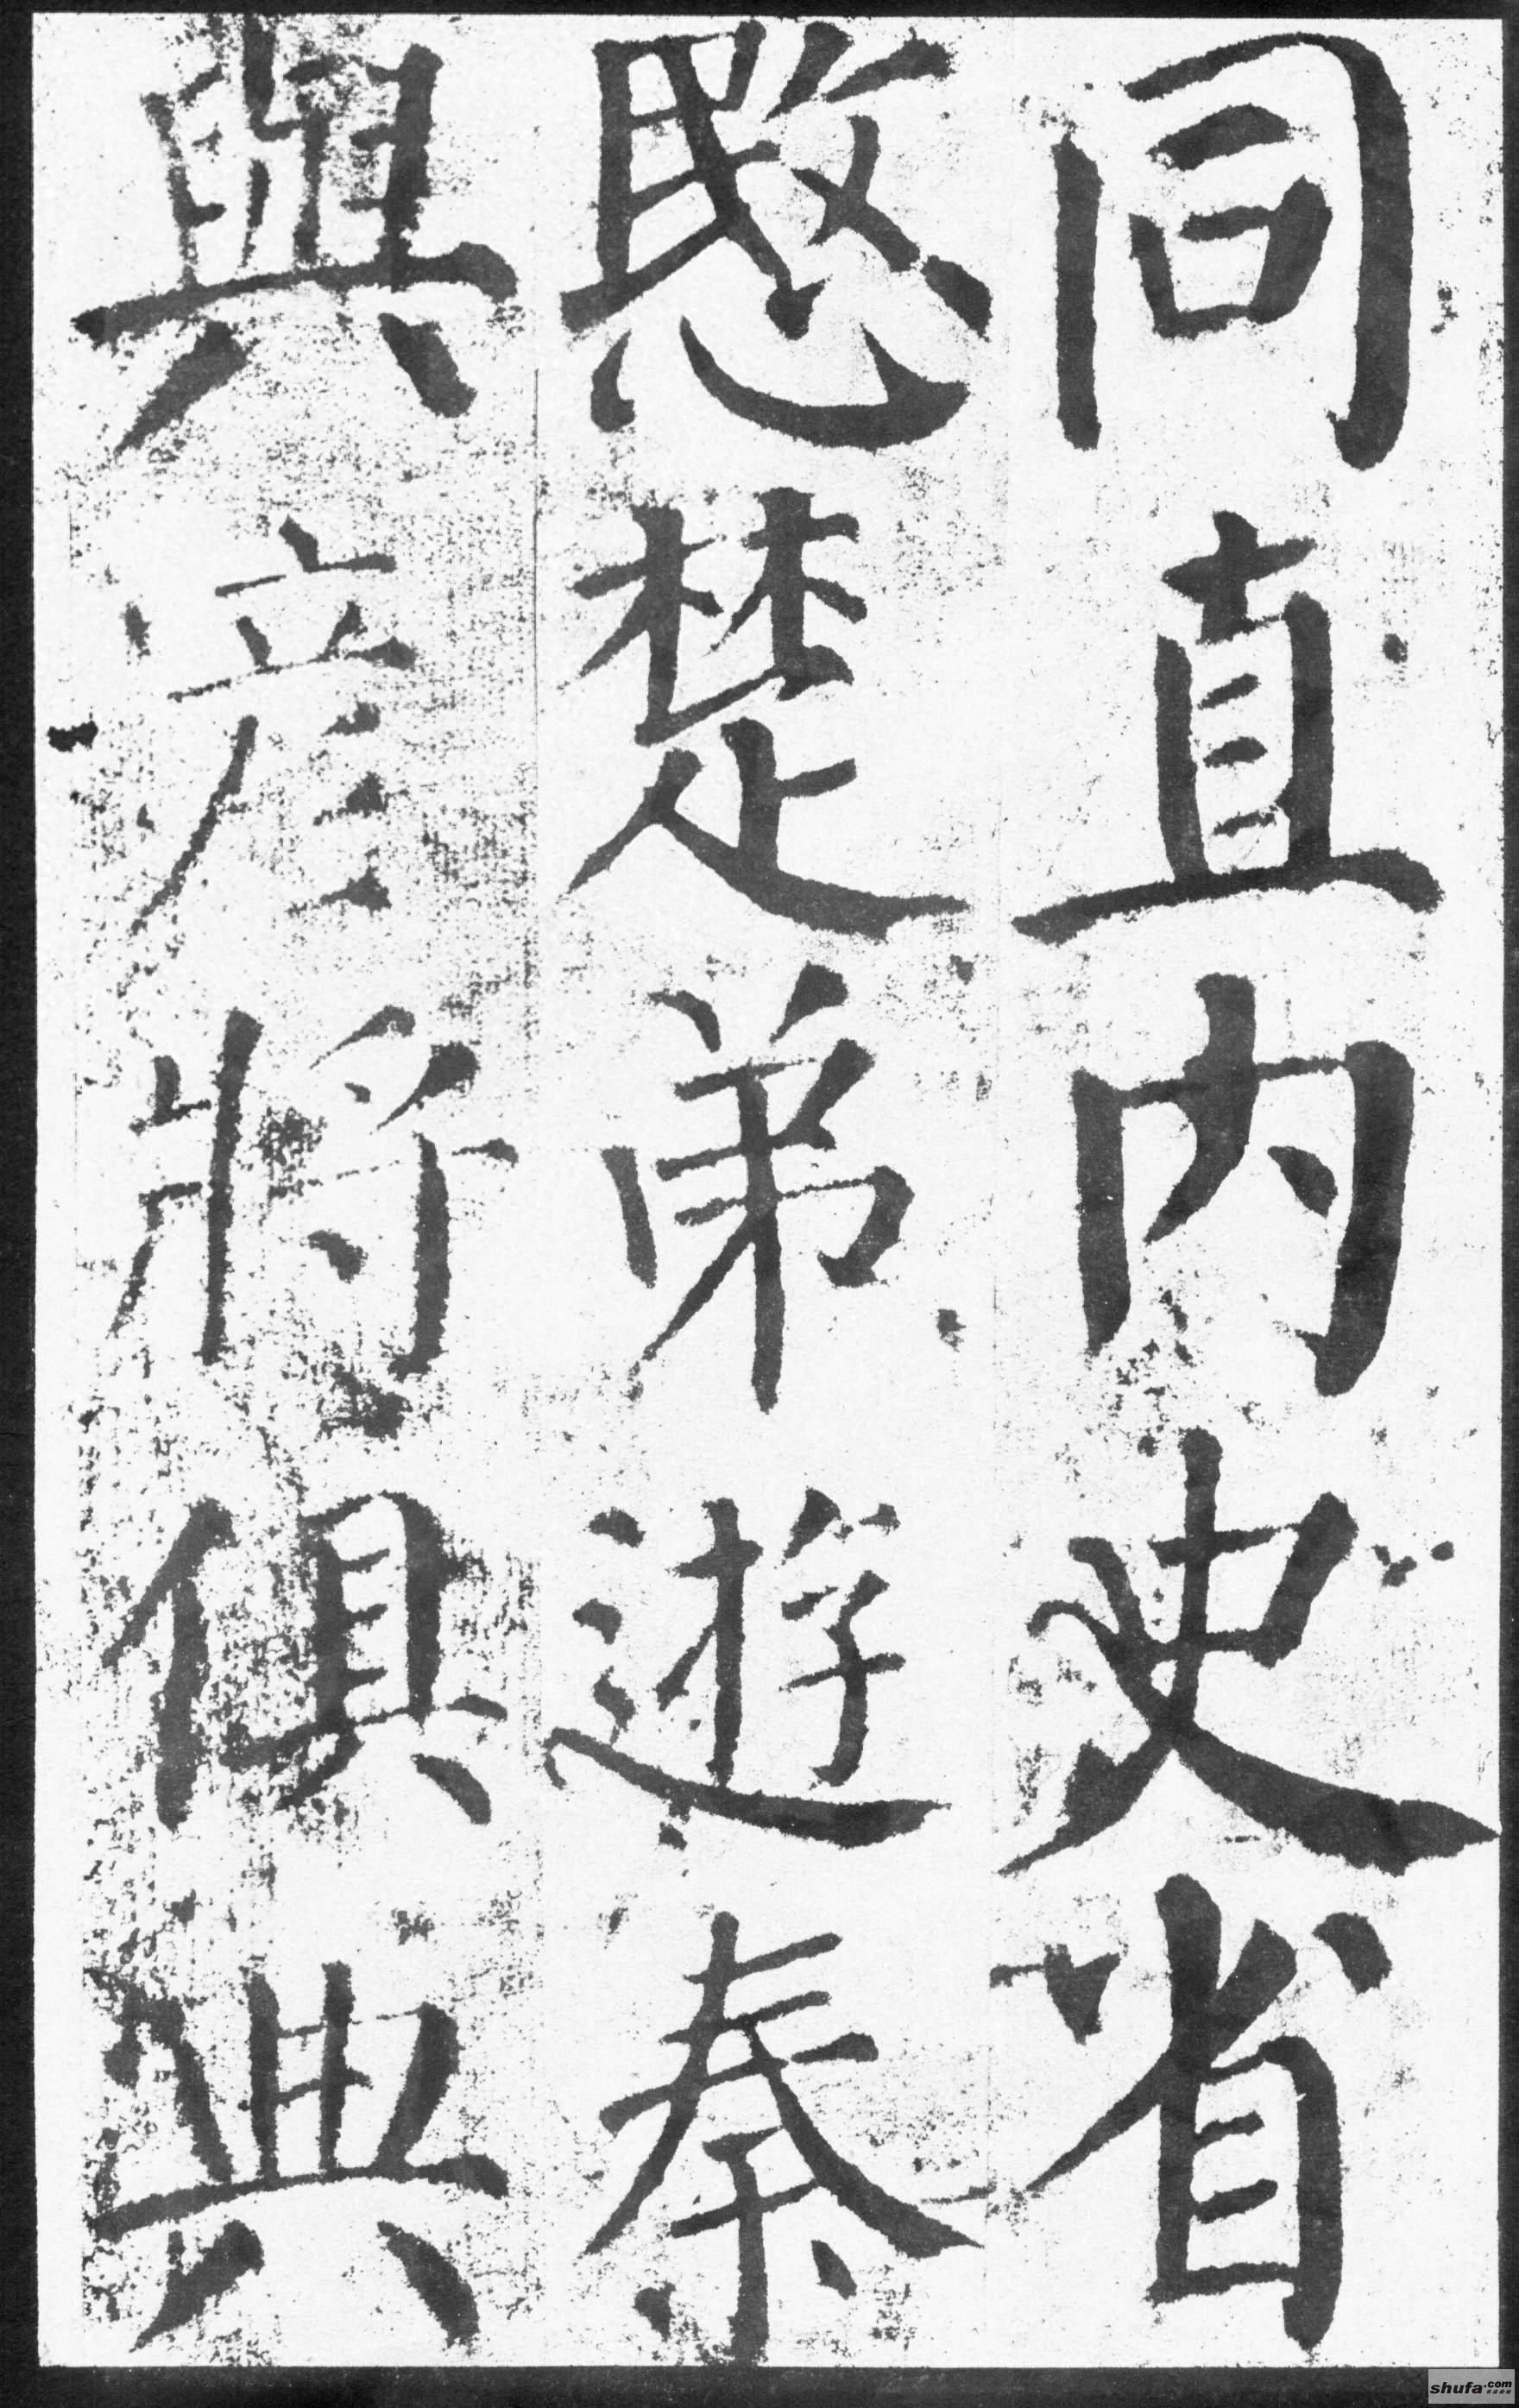 同直内史省
愍楚弟遊秦
與彦將俱典
shufa.com